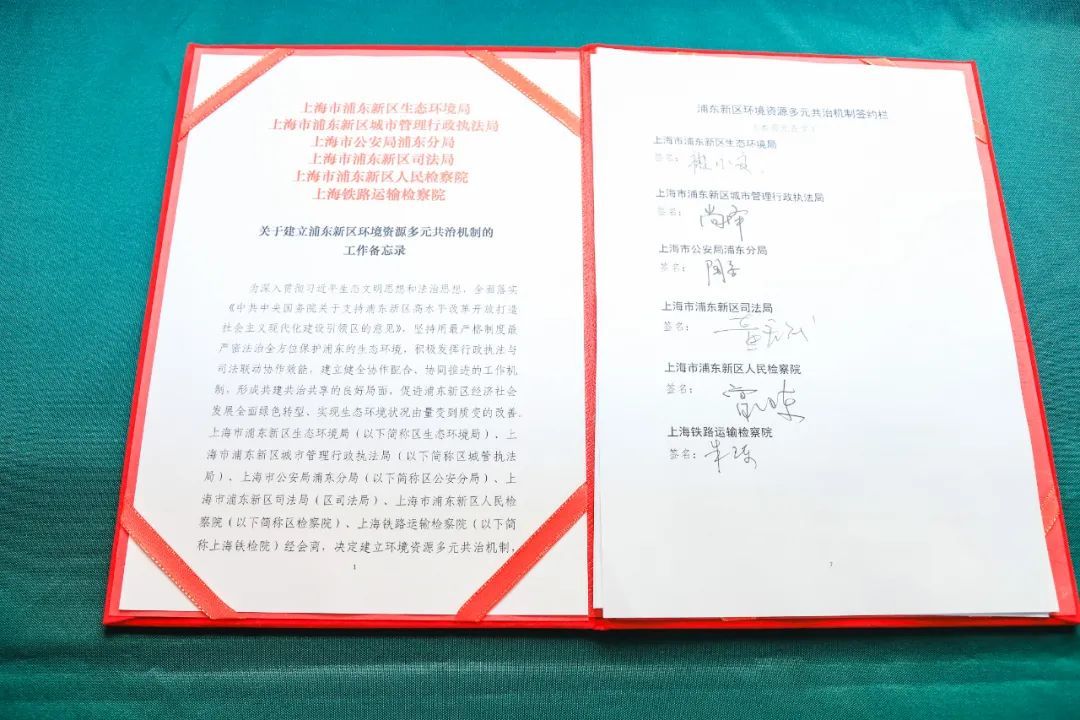 上海市浦东新区生态环境局
上海市浦东新区城市管理行政执法局
上海市公安局浦东分局
上海市浦东新区司法局
上海市浦东新区人民检察院
上海铁路运输检察院
关于建立浦东新区环境资源多元共治机制的
工作备忘录
为深入贯彻习近平生态文明思想和法治思想，全面落实
《中共中央国务院关于支持浦东新区高水平改革开放打造
社会主义现代化建设引领区的意见》，坚持用最严格制度最
严密法治全方位保护浦东的生态环境，积极发挥行政执法与
司法联动协作效能，建立健全协作配合、协同推进的工作机
制，形成共建共治共享的良好局面，促进浦东新区经济社会
发展全面绿色转型、实现生态环境状况由量变到质变的改善。
上海市浦东新区生态环境局（以下简称区生态环境局）、上
海市浦东新区城市管理行政执法局（以下简称区城管执法
局）、上海市公安局浦东分局（以下简称区公安分局）、上
海市浦东新区司法局（区司法局）、上海市浦东新区人民检
察院（以下简称区检察院）、上海铁路运输检察院（以下简
称上海铁检院）经会商，决定建立环境资源多元共治机制，
1
浦东新区环境资源多元共治机制签约栏
上海市浦东新区生态环境局
签名：
上海市浦东新区城市管理行政执法局
签名：
上海市公安局浦东分局
签名：
上海市浦东新区司法局
签名：
上海市浦东新区人民检察院
签名：
上海铁路运输检察院
签名：
7